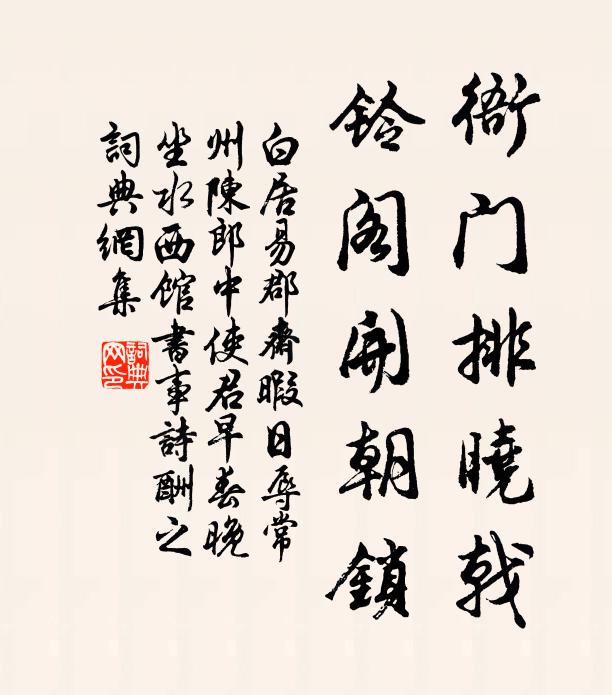 衙门排曉戟
鈴阁開朝鎖
白居易郡齋暇日辱常
州陳郎中使君早春晚
坐水西馆書事詩酬之
詞典網集
詞典
网印